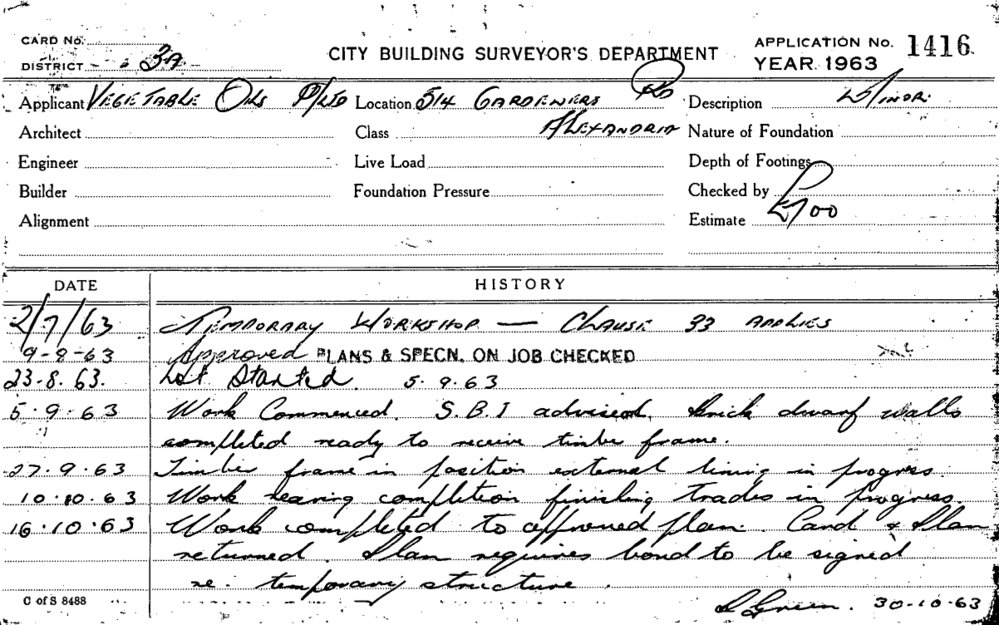 CARD No.
DISTRICT 3A
CITY BUILDING SURVEYOR'S DEPARTMENT
APPLICATION No. 1416
YEAR 1963
Applicant VEGETABLE OILS P/LTD Location 514 GARDENERS RD Description MINOR
Architect Class ALEXANDRIA Nature of Foundation
Engineer Live Load Depth of Footings
Builder Foundation Pressure Checked by
Alignment Estimate £700
DATE HISTORY
2/7/63 TEMPORARY WORKSHOP — CLAUSE 33 APPLIES
9-8-63 Approved PLANS & SPECN. ON JOB CHECKED
23.8.63. Not Started 5.9.63
5.9.63 Work Commenced. S.B.I advised. Brick dwarf walls
completed ready to receive timber frame.
27.9.63 Timber frame in position external lining in progress
10.10.63 Work nearing completion finishing trades in progress.
16.10.63 Work completed to approved plan. Card & Plan
returned. Plan requires bond to be signed
re. temporary structure.
C of S 8488
Green. 30-10-63